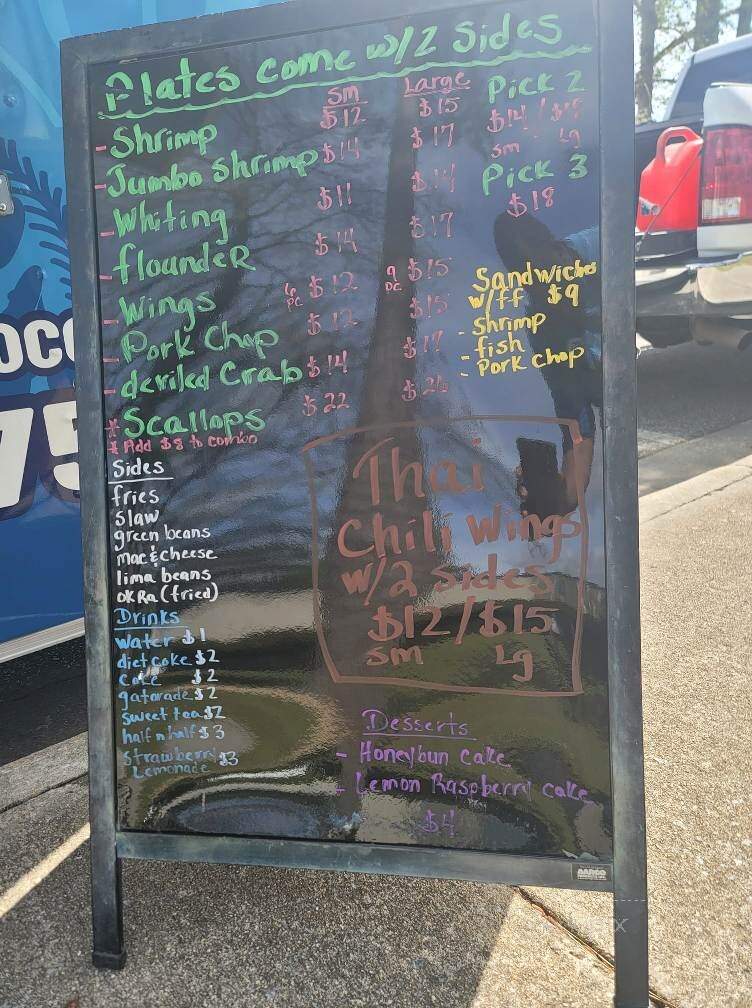 Plates come w/2 Sides
Sm Large Pick 2
- Shrimp $12 $15 $14/$15
sm Lg
- Jumbo Shrimp $14 $17 Pick 3
- Whiting $11 $14 $18
- flounder $14 $17
- Wings 6 pc $12 9 pc $15
- Pork Chop $12 $15
- deviled Crab $14 $17
* Scallops $22 $26
* Add $8 to combo
Sandwiches
w/ff $9
- shrimp
- fish
- Pork chop
Sides
fries
slaw
green beans
mac & cheese
lima beans
OKRa (fried)
Drinks
water $1
diet coke $2
coke $2
gatorade $2
sweet tea $2
half n half $3
Strawberry
Lemonade $3
Thai
Chili Wings
w/2 sides
$12/$15
sm Lg
Desserts
- Honeybun cake
- Lemon Raspberry cake
$4
OC
75